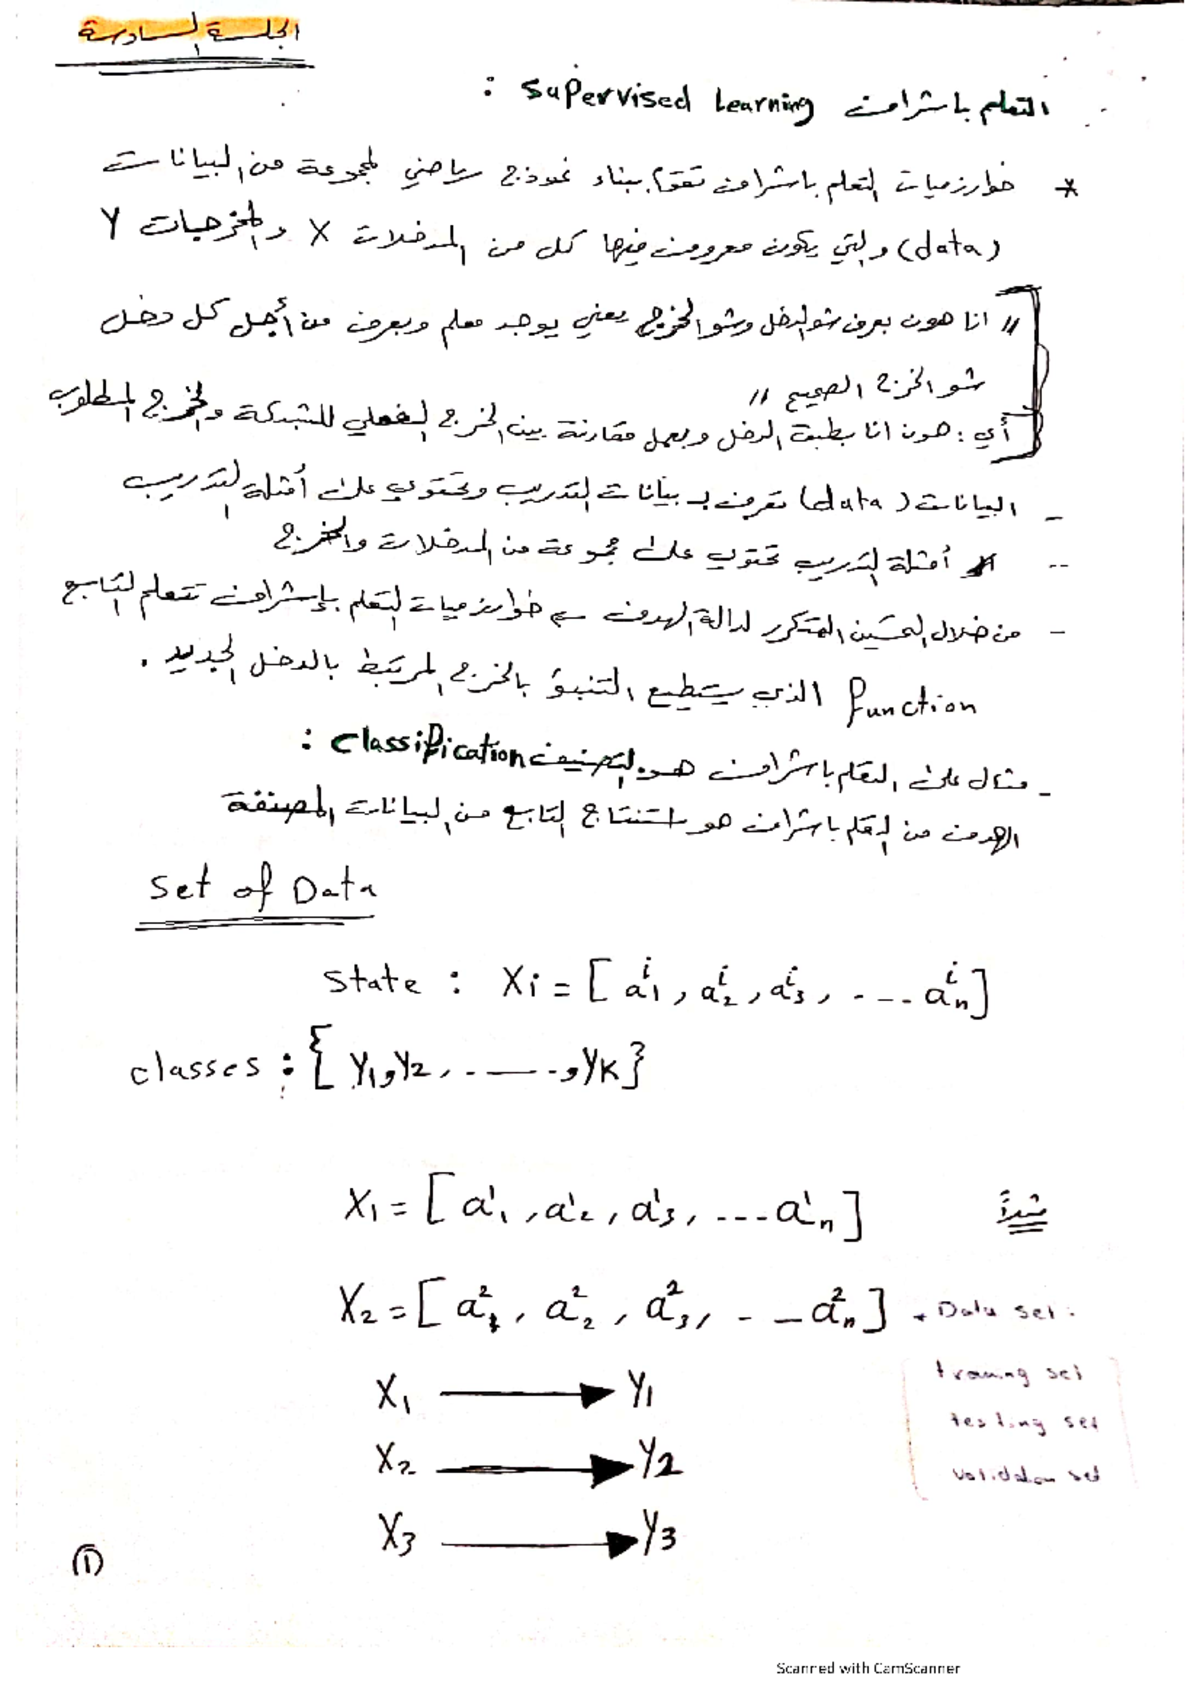 الجلسة السادسة
التعلم باشراف Supervised Learning :
* خوارزميات التعلم باشراف تقوم ببناء نموذج رياضي لمجموعة من البيانات
(data) والتي يكون معروف فيها كل من المدخلات X والمخرجات Y
" انا هون بعرف شو الدخل وشو الخرج يعني يوجد معلم وبعرف من أجل كل دخل
شو الخرج الصحيح "
أي : هون انا بطبق الدخل وبعمل مقارنة بين الخرج الفعلي للشبكة والخرج المطلوب
- البيانات (data) تعرف بـ بيانات التدريب وتحتوي على أمثلة التدريب
-- أمثلة التدريب تحتوي على مجموعة من المدخلات والخرج
- من خلال التحسين المتكرر لدالة الهدف خوارزميات التعلم بإشراف تتعلم التابع
function الذي يستطيع التنبؤ بالخرج المرتبط بالدخل الجديد .
- مثال على التعلم باشراف هو التصنيف classification :
الهدف من التعلم باشراف هو استنتاج التابع من البيانات المصنفة
Set of Data
State : Xi = [ a₁ⁱ , a₂ⁱ , a₃ⁱ , .... aₙⁱ ]
classes : { y₁ , y₂ , ....... , yK }
مثلاً
X₁ = [ a¹₁ , a¹₂ , a¹₃ , ... a¹ₙ ]
X₂ = [ a²₁ , a²₂ , a²₃ , ... a²ₙ ]
* Data set :
training set
testing set
validation set
X₁ → Y₁
X₂ → Y₂
X₃ → Y₃
①
Scanned with CamScanner